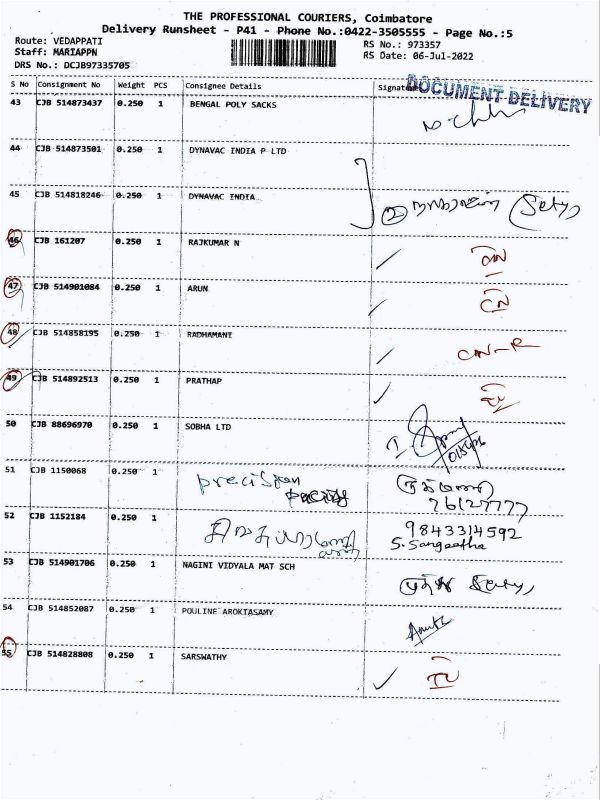 THE PROFESSIONAL COURIERS, Coimbatore
Delivery Runsheet - P41 - Phone No.:0422-3505555 - Page No.:5
Route: VEDAPPATI
RS No.: 973357
Staff: MARIAPPN
RS Date: 06-Jul-2022
DRS No.: DCJB97335705
S No Consignment No Weight PCS Consignee Details Signature
DOCUMENT DELIVERY
43 CJB 514873437 0.250 1 BENGAL POLY SACKS
44 CJB 514873501 0.250 1 DYNAVAC INDIA P LTD
45 CJB 514818246 0.250 1 DYNAVAC INDIA
46 CJB 161207 0.250 1 RAJKUMAR N
47 CJB 514901084 0.250 1 ARUN
48 CJB 514858195 0.250 1 RADHAMANI
49 CJB 514892513 0.250 1 PRATHAP
50 CJB 88696970 0.250 1 SOBHA LTD
51 CJB 1150068 0.250 1 precision
76127777
52 CJB 1152184 0.250 1 9843314592
S. Sangeetha
53 CJB 514901706 0.250 1 NAGINI VIDYALA MAT SCH
54 CJB 514852087 0.250 1 POULINE AROKTASAMY
55 CJB 514828808 0.250 1 SARSWATHY